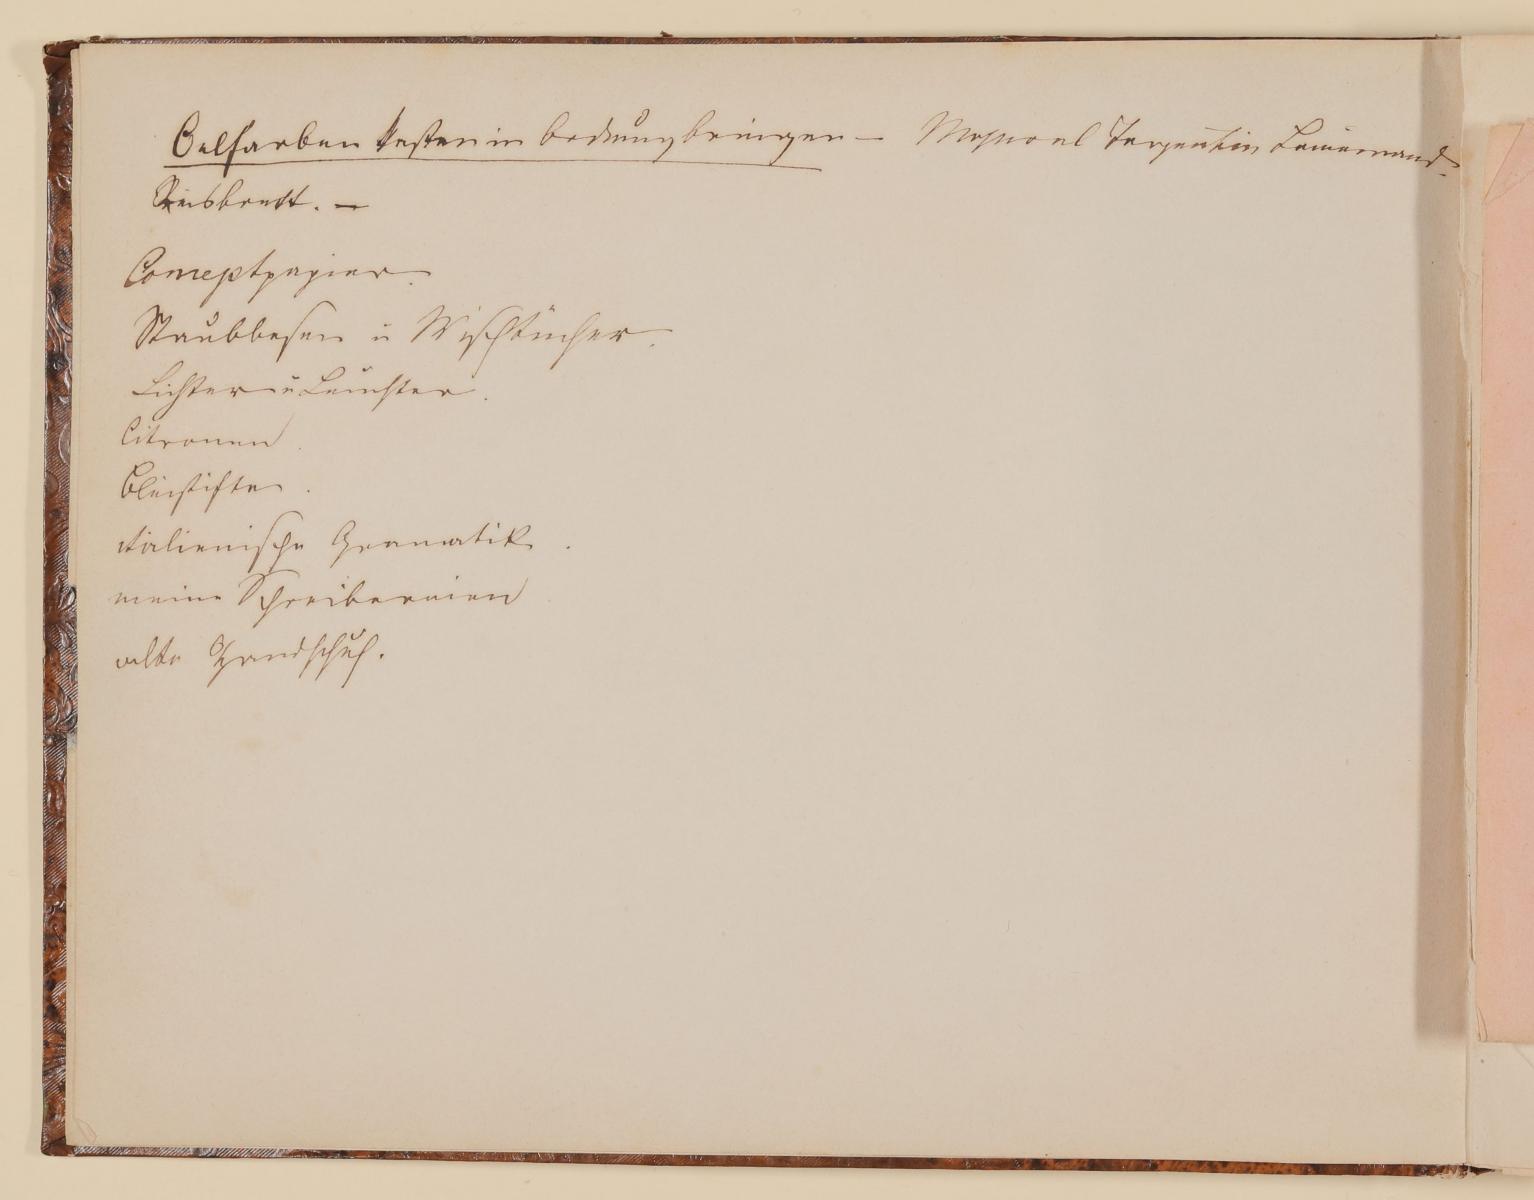 Oelfarben kasten in Ordnung bringen — Mohnoel Terpentin Leinewand.
Reisbrett. —
Conceptpapier.
Staubbesen u Wischtücher.
Lichter u Leuchter.
Citronen.
Bleistifte.
italienische Gramatik.
meine Schreibereien
alte Handschuh.